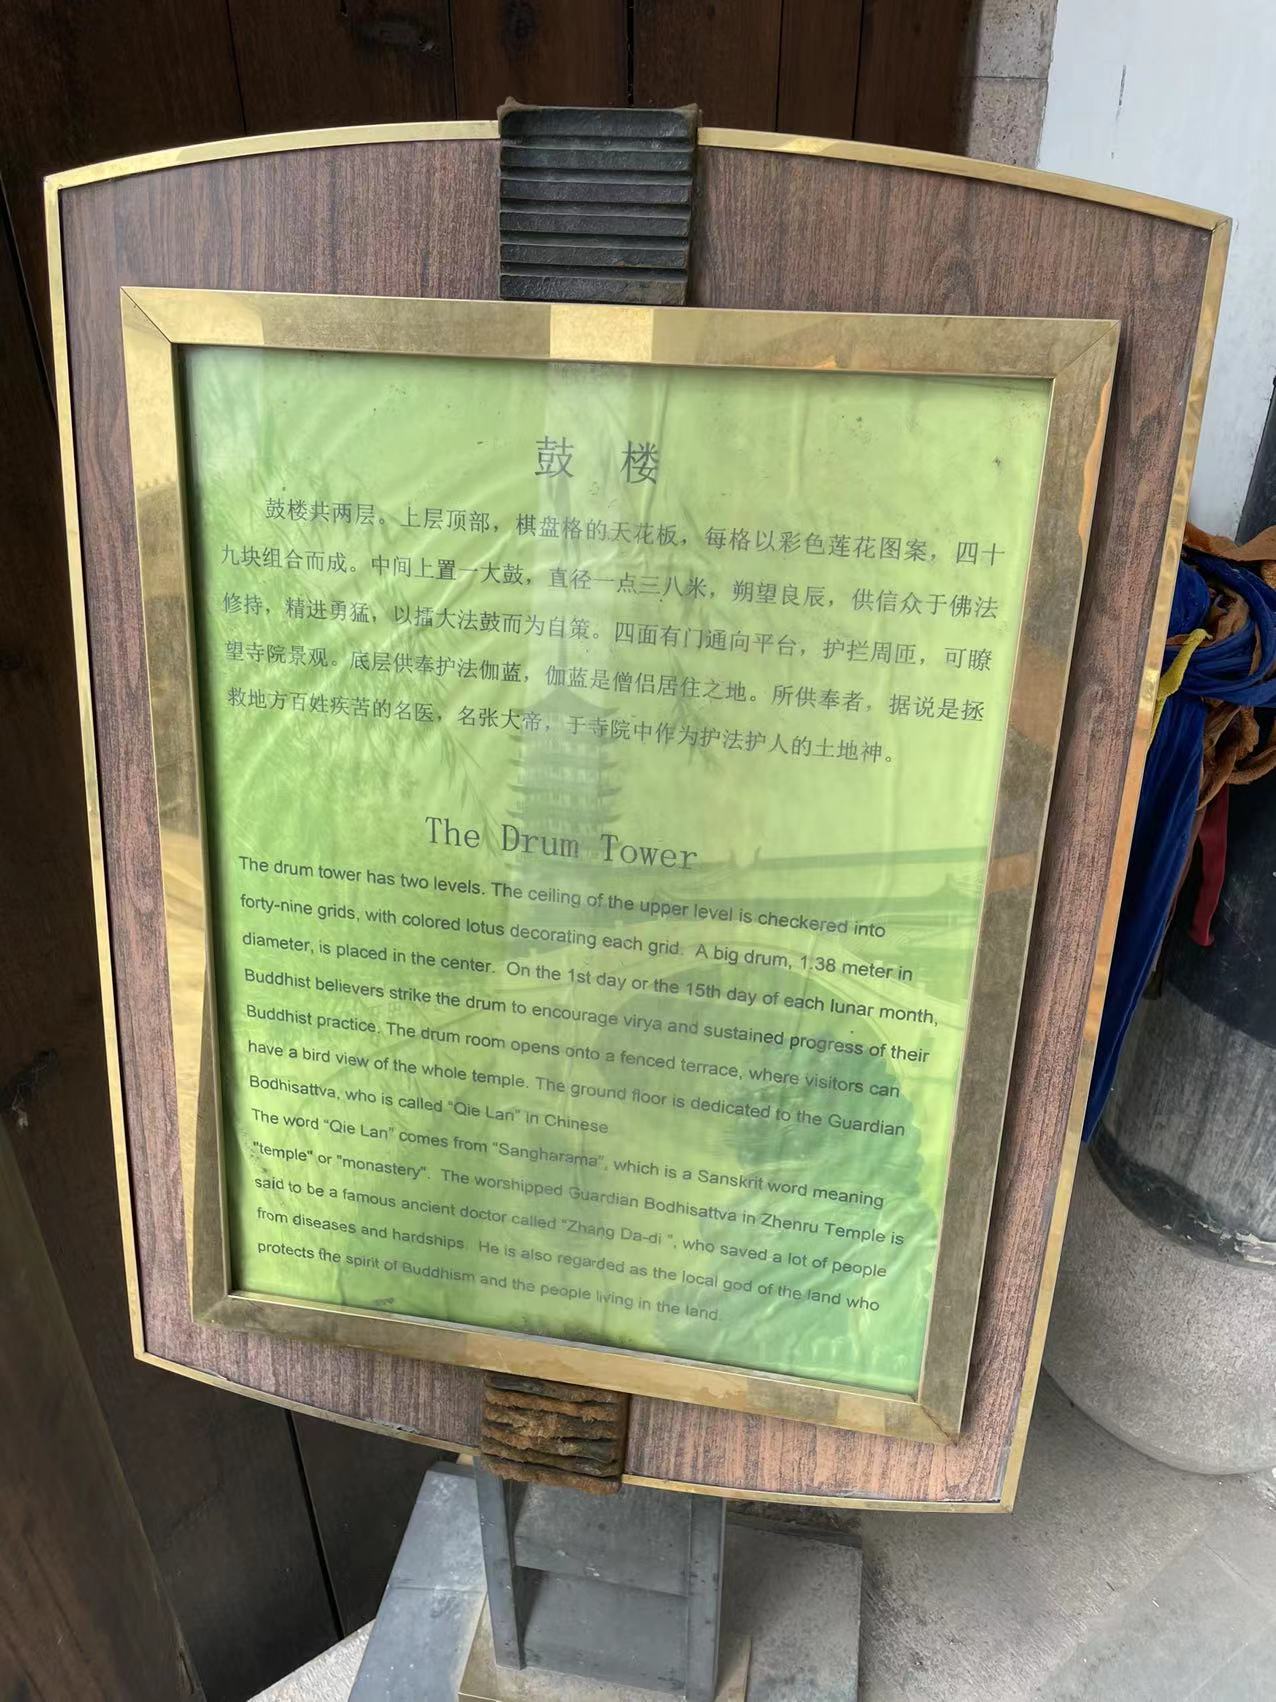 鼓 楼
鼓楼共两层。上层顶部，棋盘格的天花板，每格以彩色莲花图案，四十
九块组合而成。中间上置一大鼓，直径一点三八米，朔望良辰，供信众于佛法
修持，精进勇猛，以擂大法鼓而为自策。四面有门通向平台，护拦周匝，可瞭
望寺院景观。底层供奉护法伽蓝，伽蓝是僧侣居住之地。所供奉者，据说是拯
救地方百姓疾苦的名医，名张大帝，于寺院中作为护法护人的土地神。
The Drum Tower
The drum tower has two levels. The ceiling of the upper level is checkered into
forty-nine grids, with colored lotus decorating each grid. A big drum, 1.38 meter in
diameter, is placed in the center. On the 1st day or the 15th day of each lunar month,
Buddhist believers strike the drum to encourage virya and sustained progress of their
Buddhist practice. The drum room opens onto a fenced terrace, where visitors can
have a bird view of the whole temple. The ground floor is dedicated to the Guardian
Bodhisattva, who is called “Qie Lan” in Chinese
The word “Qie Lan” comes from “Sangharama”, which is a Sanskrit word meaning
"temple" or "monastery". The worshipped Guardian Bodhisattva in Zhenru Temple is
said to be a famous ancient doctor called “Zhang Da-di ”, who saved a lot of people
from diseases and hardships. He is also regarded as the local god of the land who
protects the spirit of Buddhism and the people living in the land.